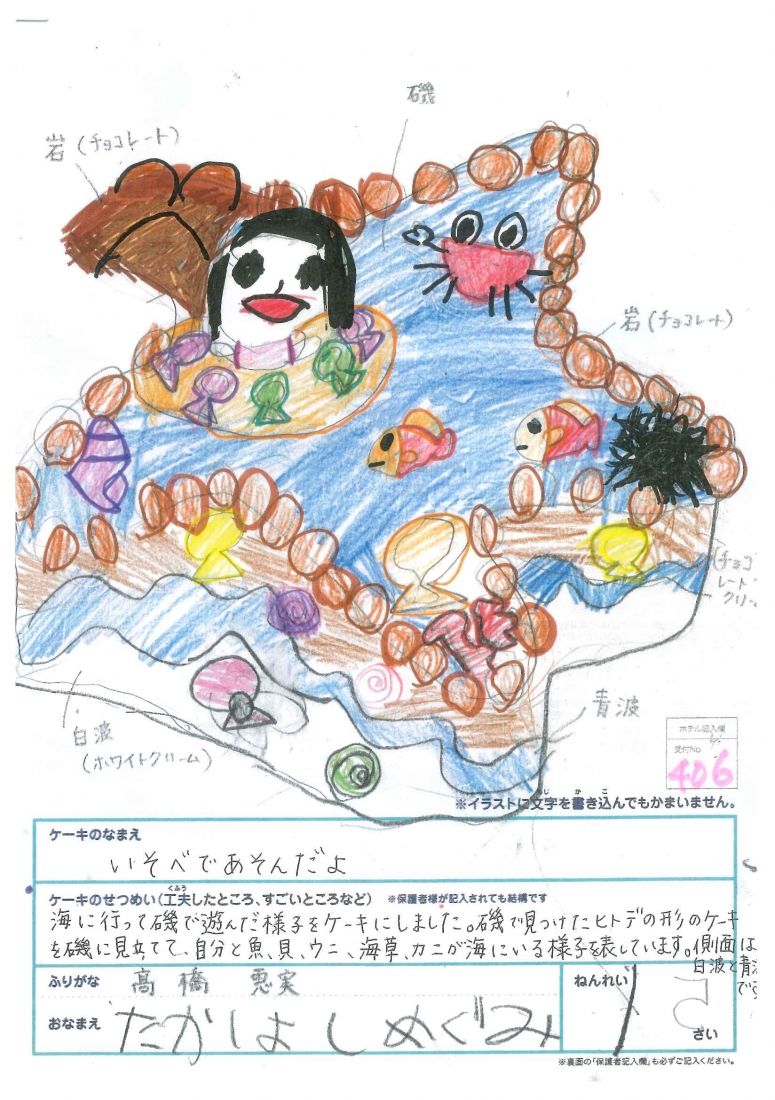 磯
岩(チョコレート)
岩(チョコレート)
(チョコ
レート
クリー
青波
白波
(ホワイトクリーム)
ホテル記入欄
受付No
406
※イラストに文字を書き込んでもかまいません。
ケーキのなまえ
いそべであそんだよ
ケーキのせつめい(工夫したところ、すごいところなど) ※保護者様が記入されても結構です
海に行って磯で遊んだ様子をケーキにしました。磯で見つけたヒトデの形のケーキ
を磯に見立てて、自分と魚、貝、ウニ、海草、カニが海にいる様子を表しています。側面は
白波と青波
です
ふりがな 高橋 恵実
ねんれい
おなまえ たかはしめぐみ
5 さい
※裏面の「保護者記入欄」も必ずご記入ください。